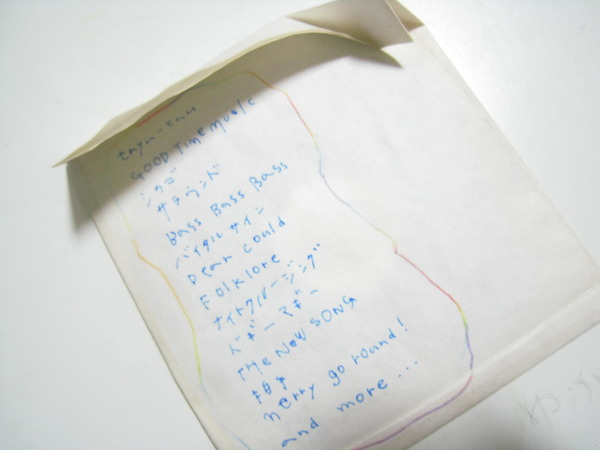 tayu-tau
GOOD TIME music
シカゴ
サラウンド
Bass Bass Bass
バイタルサイン
Dear Could
Folklore
ナイトクルージング
ドギーマギー
THE NEW SONG
merry go round!
and more ...